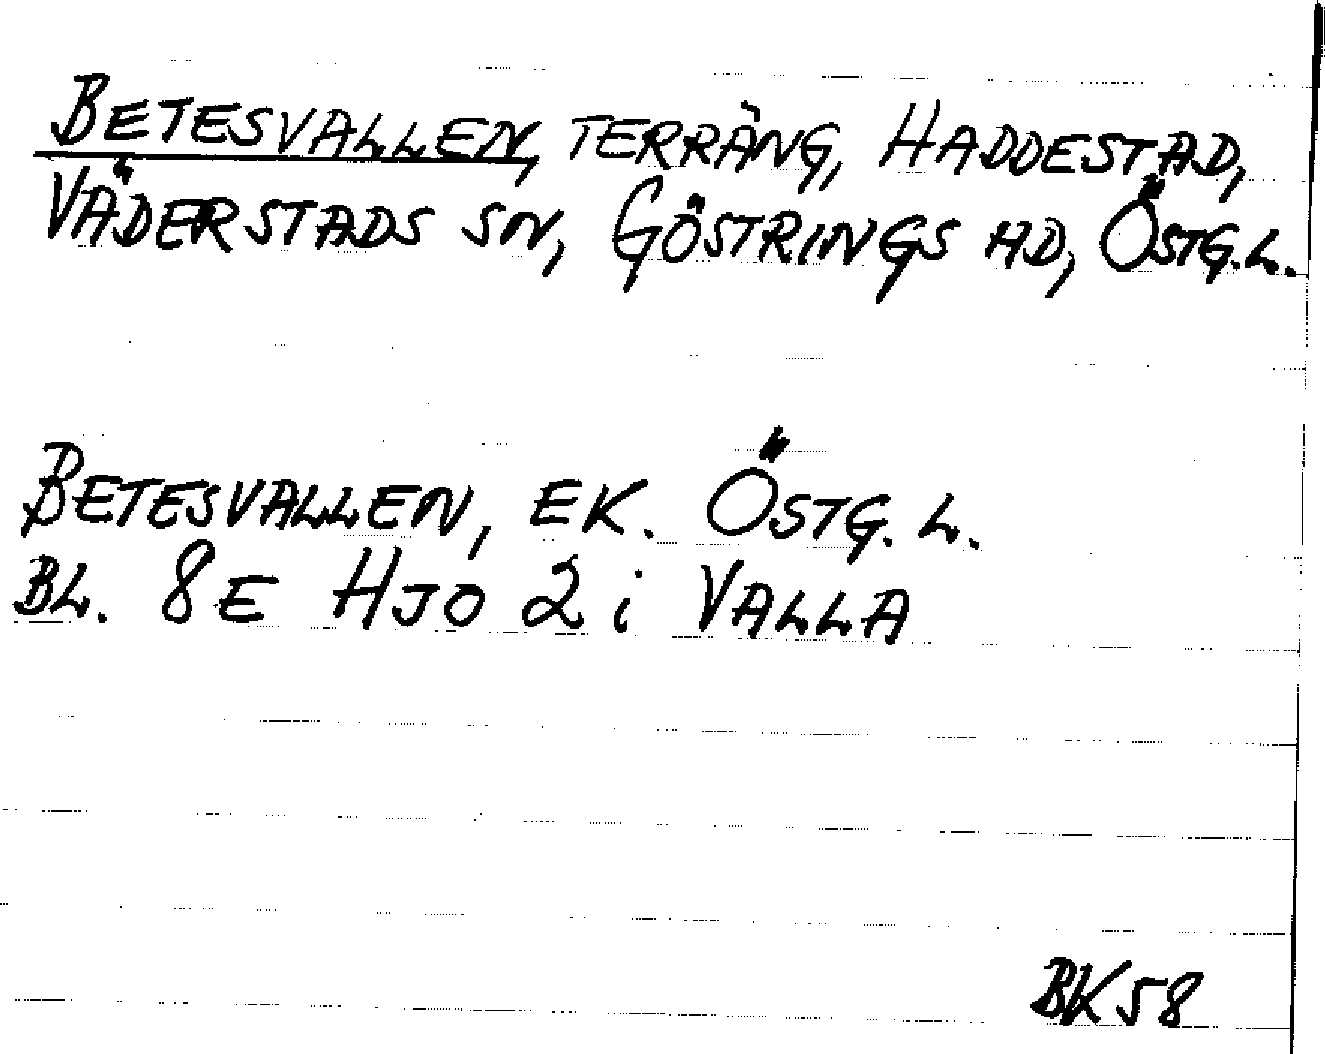 BETESVALLEN, TERRÄNG, HADDESTAD,
VÄDERSTADS SN, GÖSTRINGS HD, ÖSTG.L.
BETESVALLEN, EK. ÖSTG. L.
BL. 8E HJO 2 i VALLA
BK58